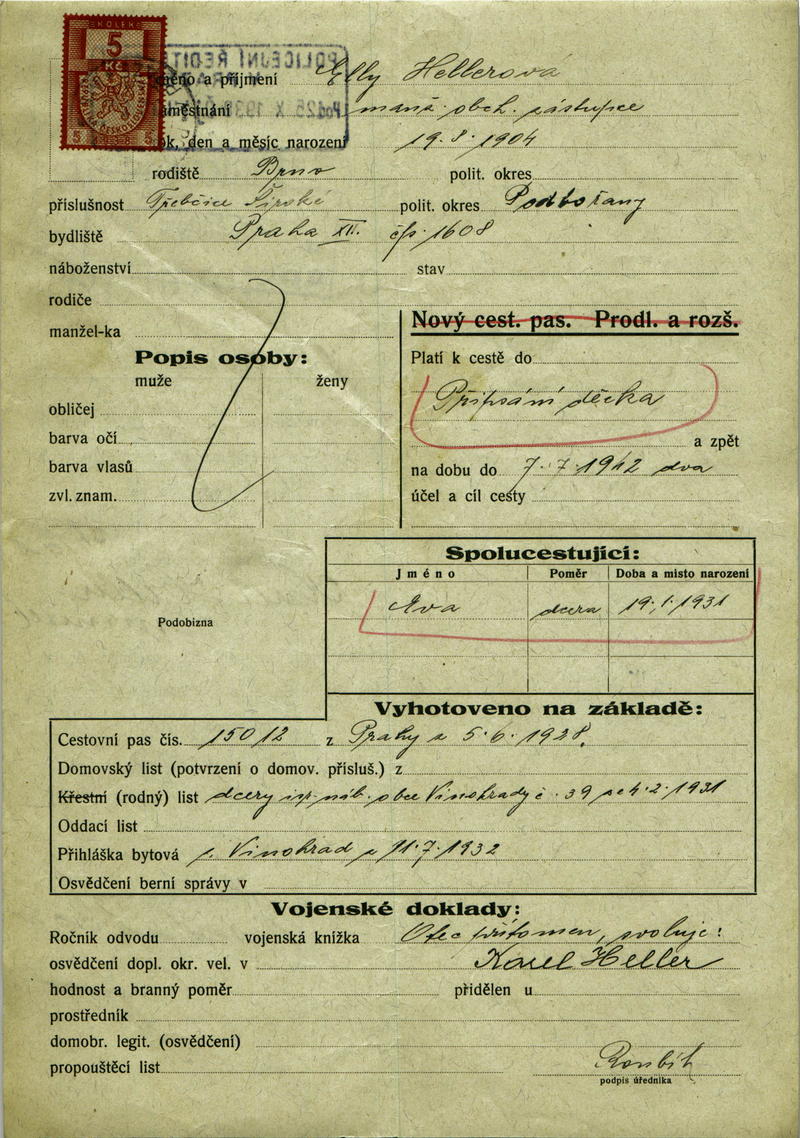 KOLEK
5
Kč
5 1938 5
POLICEJNÍ ŘEDITEL
25. X 193
Jméno a příjmení Elly Hellerová
zaměstnání manž. obch. zástupce
Rok, den a měsíc narození 19. 8. 1904
rodiště Brno polit. okres
příslušnost Třebčice Široké polit. okres Podbořany
bydliště Praha XII. čp. 1608
náboženství stav
rodiče
manžel-ka
Nový cest. pas. Prodl. a rozš.
Popis osoby:
muže ženy
Platí k cestě do
obličej
Připsání děcka
barva očí
a zpět
barva vlasů
na dobu do 7. 7. 1942 dva
zvl. znam.
účel a cíl cesty
Spolucestující:
Jméno Poměr Doba a místo narození
Eva dcera 19. 1. 1931
Podobizna
Vyhotoveno na základě:
Cestovní pas čís. 15012 z Prahy z 5. 6. 1928.
Domovský list (potvrzení o domov. přísluš.) z
Křestní (rodný) list dcery isr. náb. obce Vinohrady č. 39 ze 4. 2. 1931
Oddací list
Přihláška bytová z Vinohrad z 11. 7. 1932
Osvědčení berní správy v
Vojenské doklady:
Ročník odvodu vojenská knížka Otec přítomen, svoluje:
osvědčení dopl. okr. vel. v Karel Heller
hodnost a branný poměr přidělen u
prostředník
domobr. legit. (osvědčení)
propouštěcí list
podpis úředníka